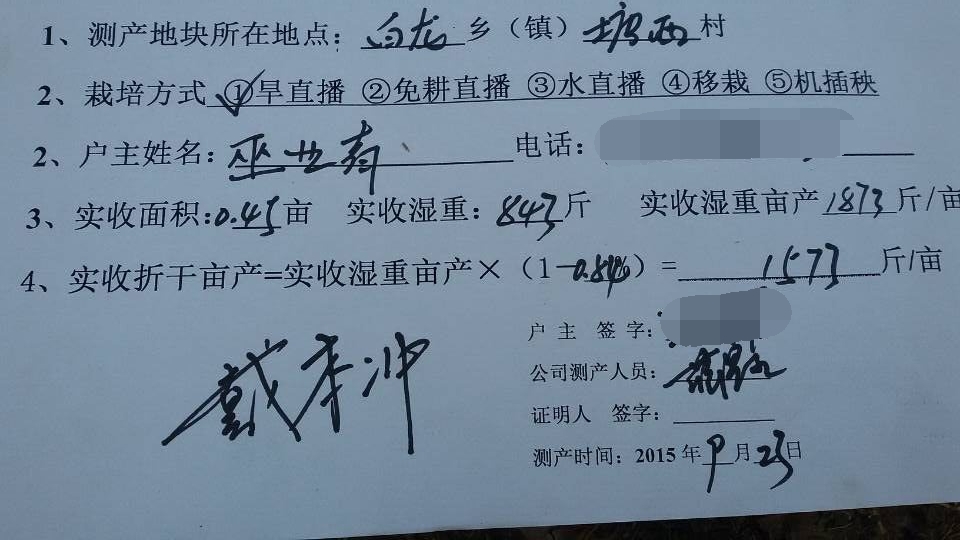 1、测产地块所在地点：白龙乡（镇）塘西村
2、栽培方式 ①旱直播 ②免耕直播 ③水直播 ④移栽 ⑤机插秧
2、户主姓名：巫世寿 电话：
3、实收面积：0.45亩 实收湿重：843斤 实收湿重亩产1873斤/亩
4、实收折干亩产=实收湿重亩产×（1-）=1573斤/亩
户主 签字：
戴李冲
公司测产人员：
证明人 签字：
测产时间：2015年9月23日